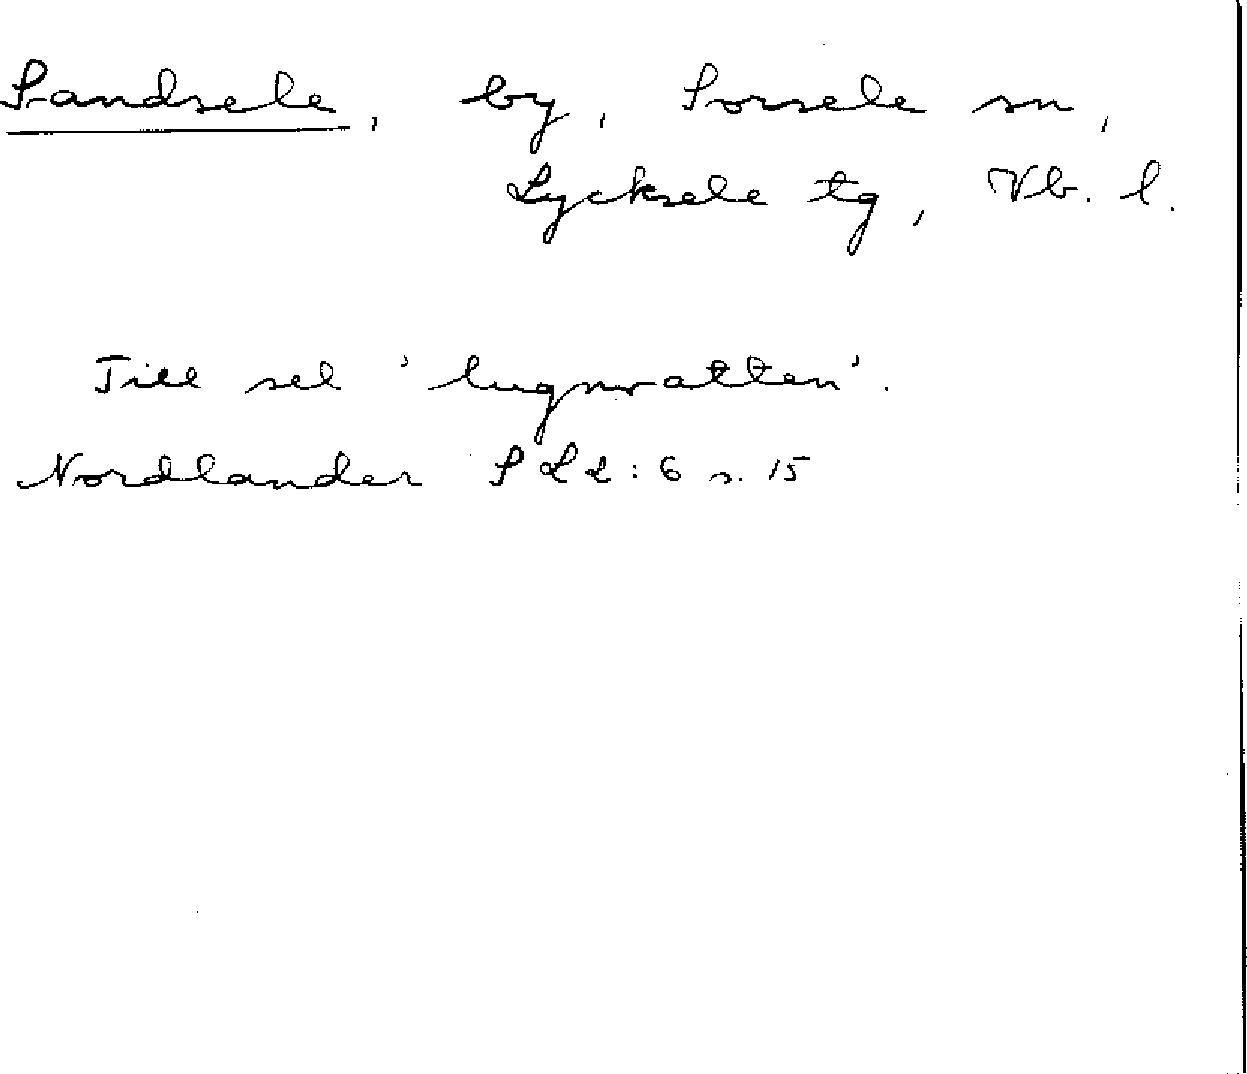 Sandsele, by, Sorsele sn,
Lycksele tg, Vb. l.
Till sel 'lugnvatten'.
Nordlander SLL: 6 s. 15